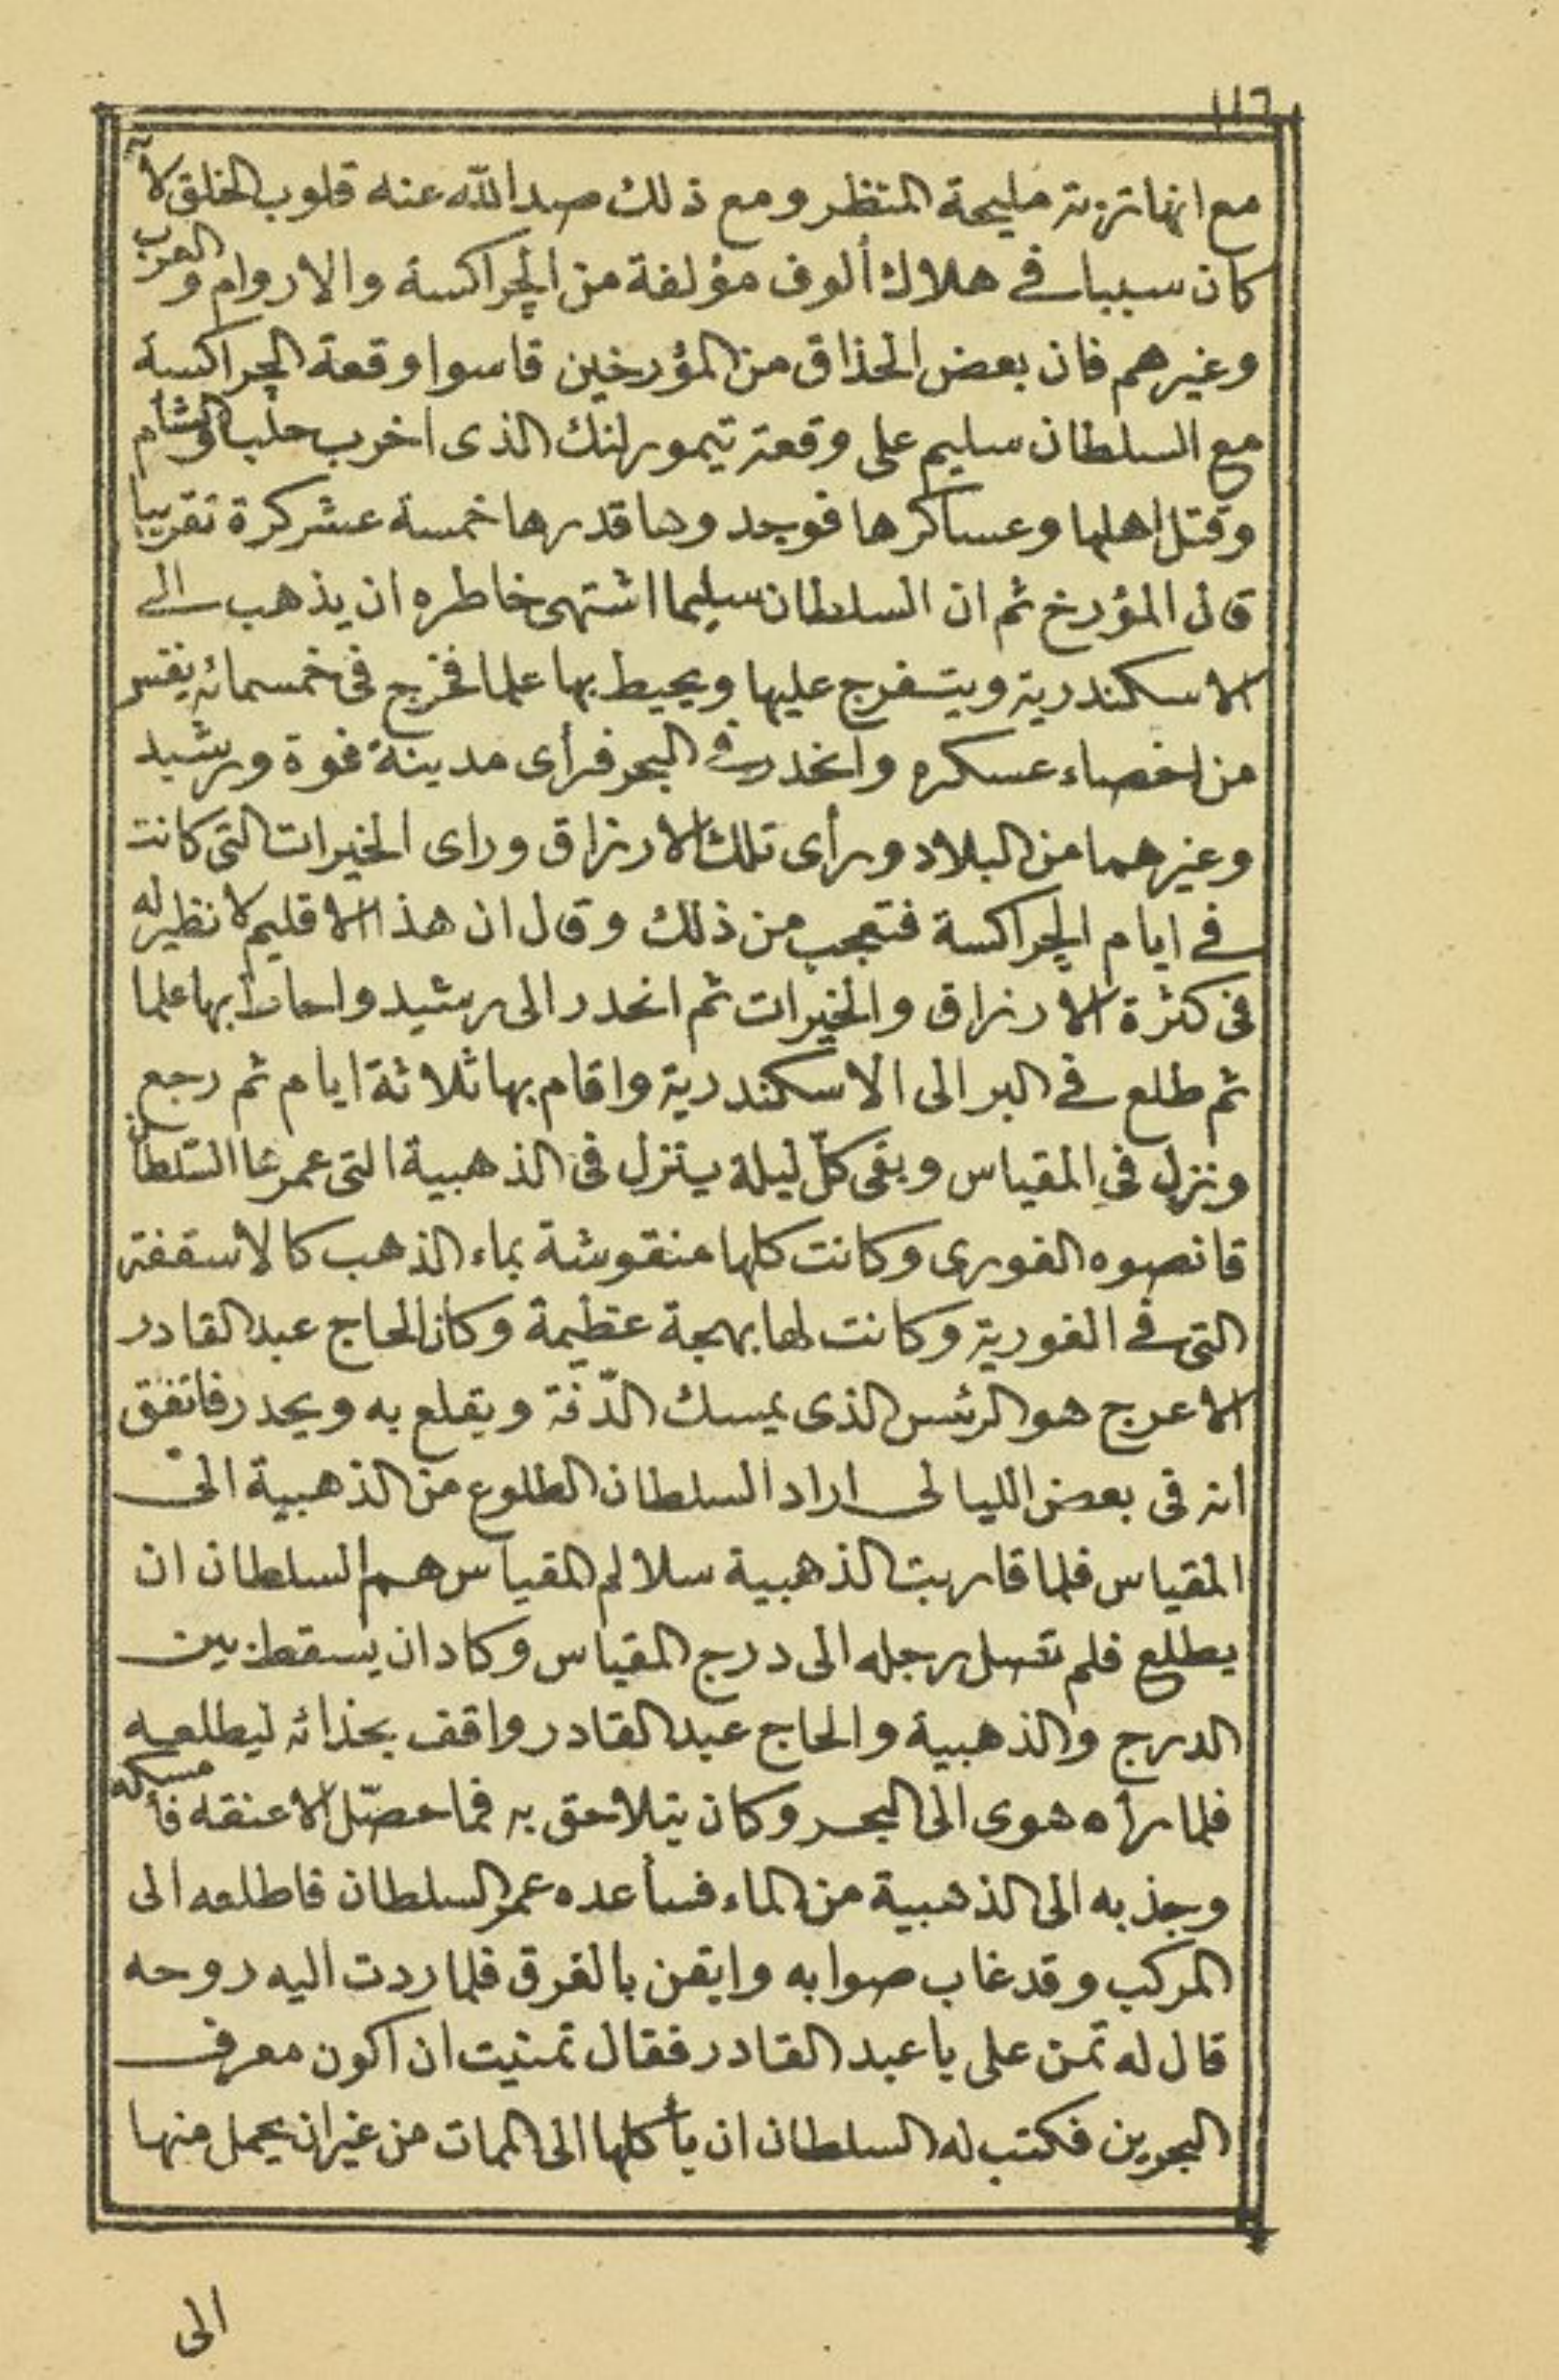 ١١٦
مع انها تربة مليحة المنظر ومع ذلك صد الله عنه قلوب الخلق لانه
كان سببا في هلاك ألوف مؤلفة من الجراكسة والاروام والعرب
وغيرهم فان بعض الحذاق من المؤرخين قاسوا وقعة الجراكسة
مع السلطان سليم على وقعة تيمورلنك الذى اخرب حلب والشام
وقتل اهلها وعساكرها فوجدوها قدرها خمسة عشر كرة تقريبا
قال المؤرخ ثم ان السلطان سليما اشتهى خاطره ان يذهب الى
الاسكندرية ويتفرج عليها ويحيط بها علما فخرج فى خمسمائة نفس
من اخصاء عسكره وانحدر في البحر فرأى مدينة فوة ورشيد
وغيرهما من البلاد ورأى تلك الارزاق وراى الخيرات التى كانت
في ايام الجراكسة فتعجب من ذلك وقال ان هذا الاقليم لا نظير له
فى كثرة الارزاق والخيرات ثم انحدر الى رشيد واحاط بها علما
ثم طلع في البر الى الاسكندرية واقام بها ثلاثة ايام ثم رجع
ونزل في المقياس وبقى كلّ ليلة ينزل فى الذهبية التى عمرها السلطان
قانصوه الغورى وكانت كلها منقوشة بماء الذهب كالأسقفة
التى في الغورية وكانت لها بهجة عظيمة وكان الحاج عبد القادر
الاعرج هو الرئس الذى يمسك الدّفة ويقلع به ويحدر فاتفق
انه فى بعض الليالى اراد السلطان الطلوع من الذهبية الى
المقياس فلما قاربت الذهبية سلالم المقياس هم السلطان ان
يطلع فلم تصل رجله الى درج المقياس وكاد ان يسقط بين
الدرج والذهبية والحاج عبد القادر واقف بحذائه ليطلعه
فلما رأه هوى الى البحر وكان يتلاحق به فما حصّل الا عنقه فأمسكه
وجذبه الى الذهبية من الماء فسأعده عمر السلطان فاطلعه الى
المركب وقد غاب صوابه وايقن بالغرق فلما ردت اليه روحه
قال له تمن على يا عبد القادر فقال تمنيت ان اكون معرف
البحرين فكتب له السلطان ان يأكلها الى الممات من غير ان يحمل منها
الى